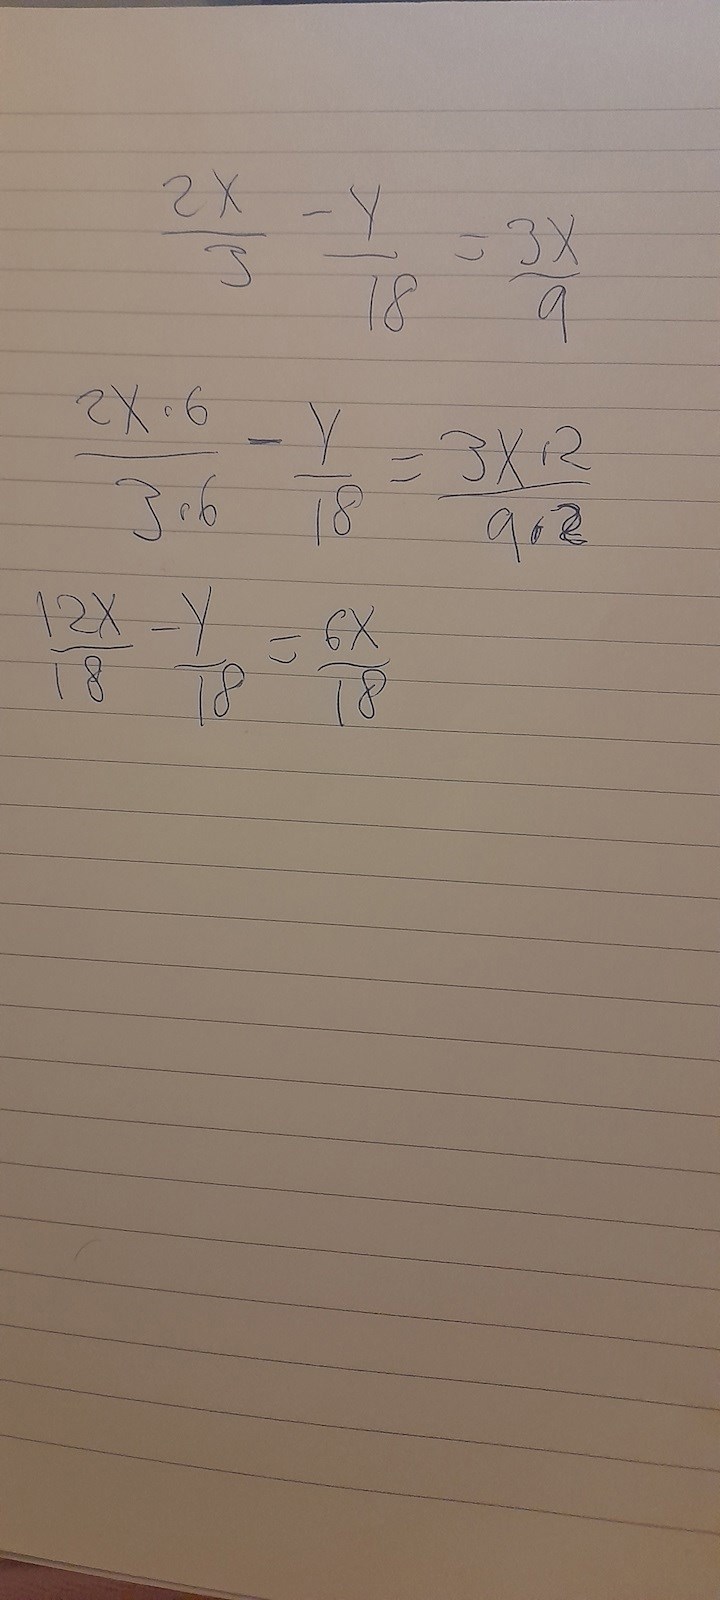 2X/3 - Y/18 = 3X/9
2X·6/3·6 - Y/18 = 3X·2/9·2
12X/18 - Y/18 = 6X/18